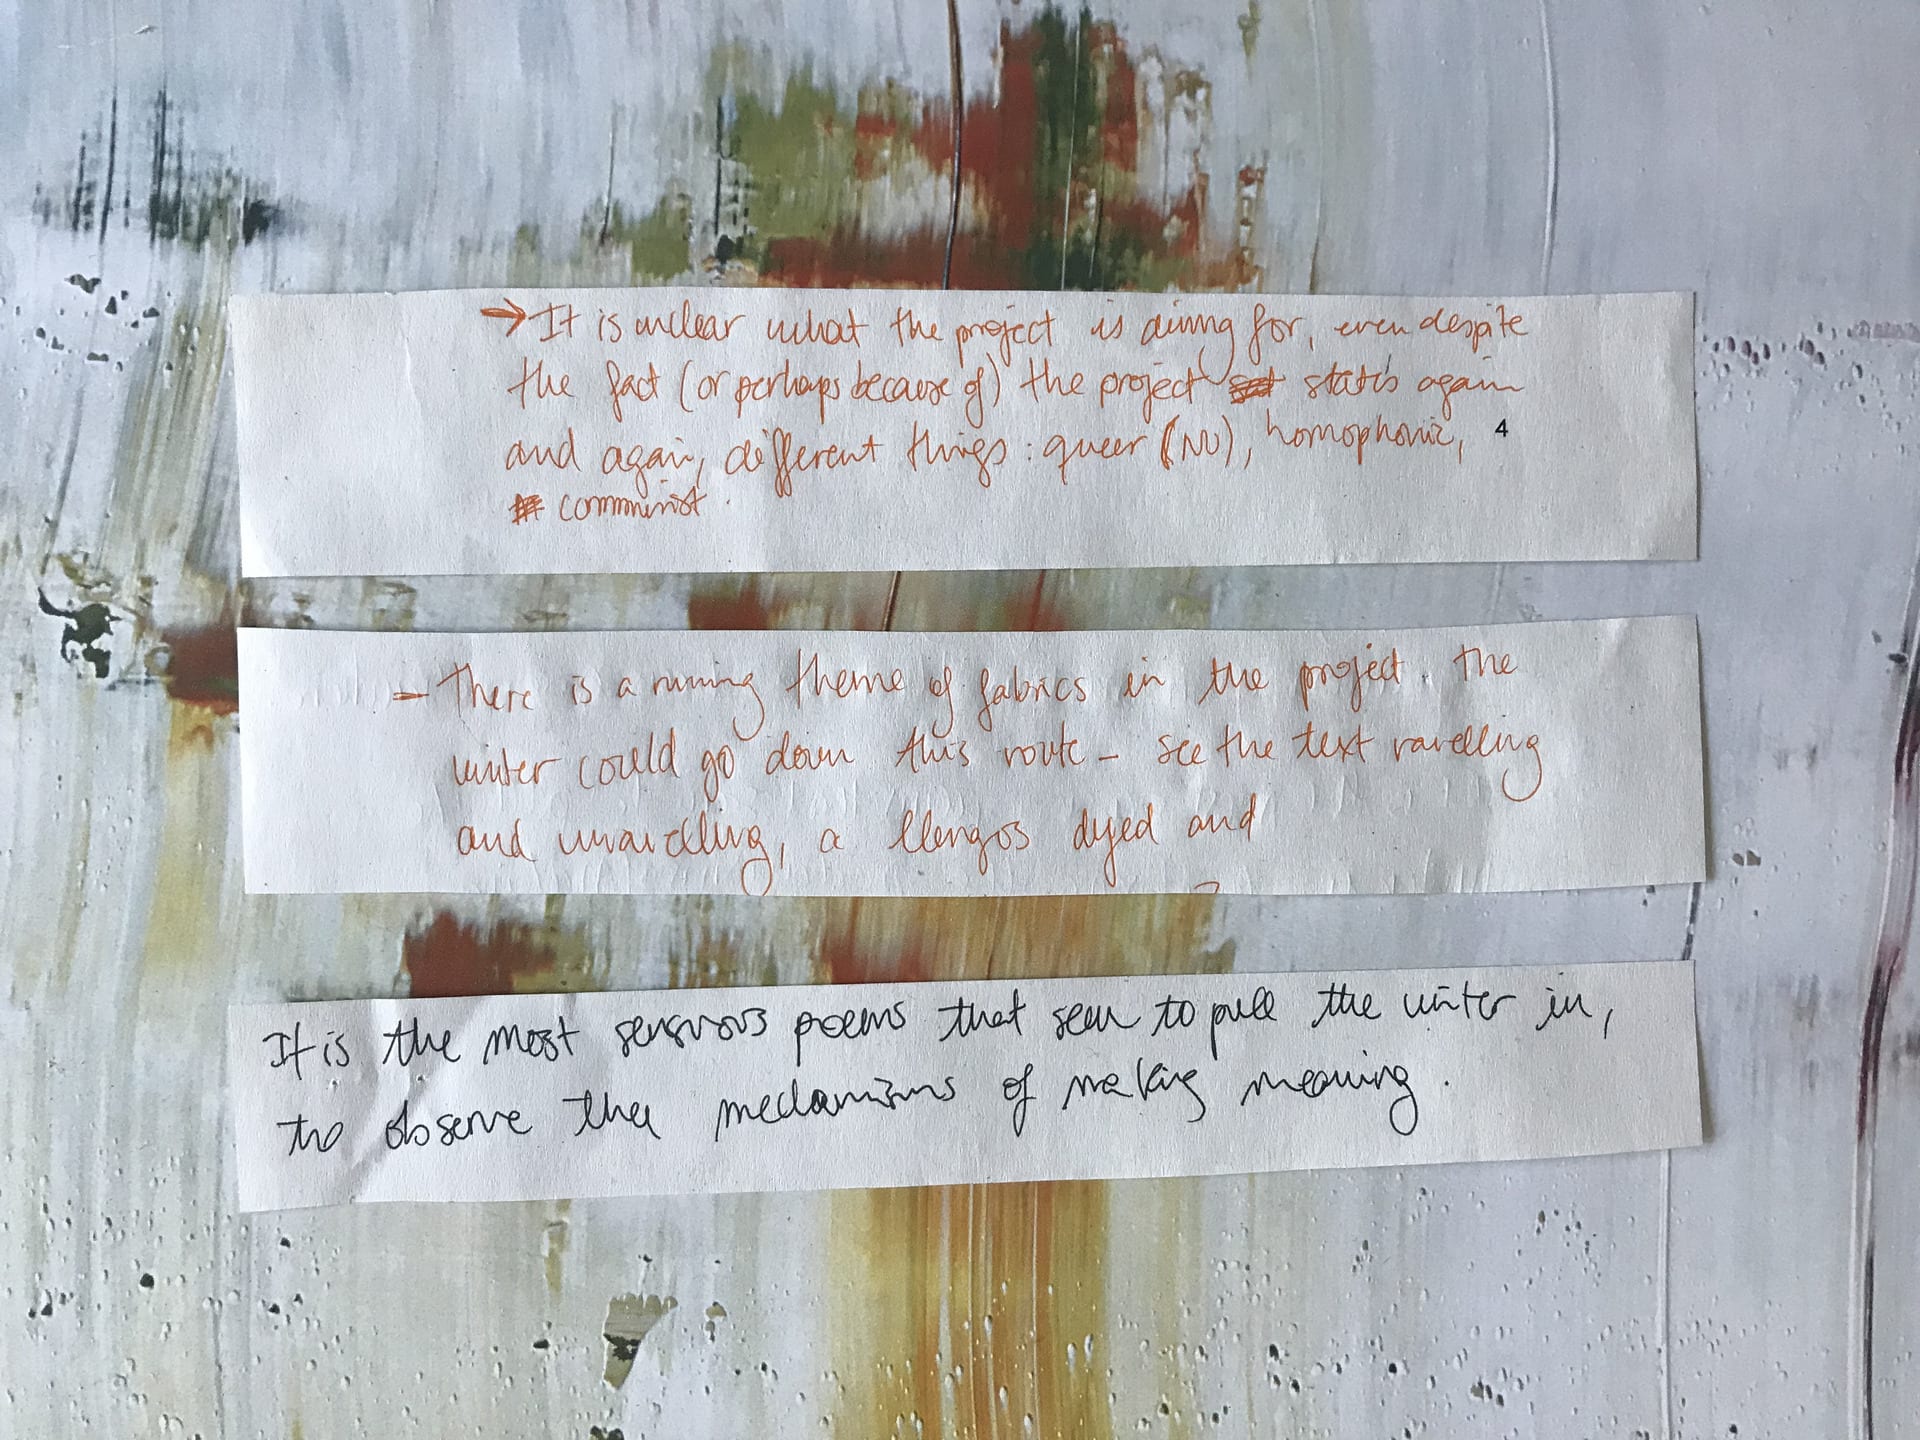 → It is unclear what the project is aiming for, even despite
the fact (or perhaps because of) the project states again
and again, different things: queer (NU), homophonic,
4
communist.
– There is a running theme of fabrics in the project. The
writer could go down this route – see the text ravelling
and unravelling, a llengos dyed and
It is the most sensuous poems that seem to pull the writer in,
to observe the mechanisms of making meaning.